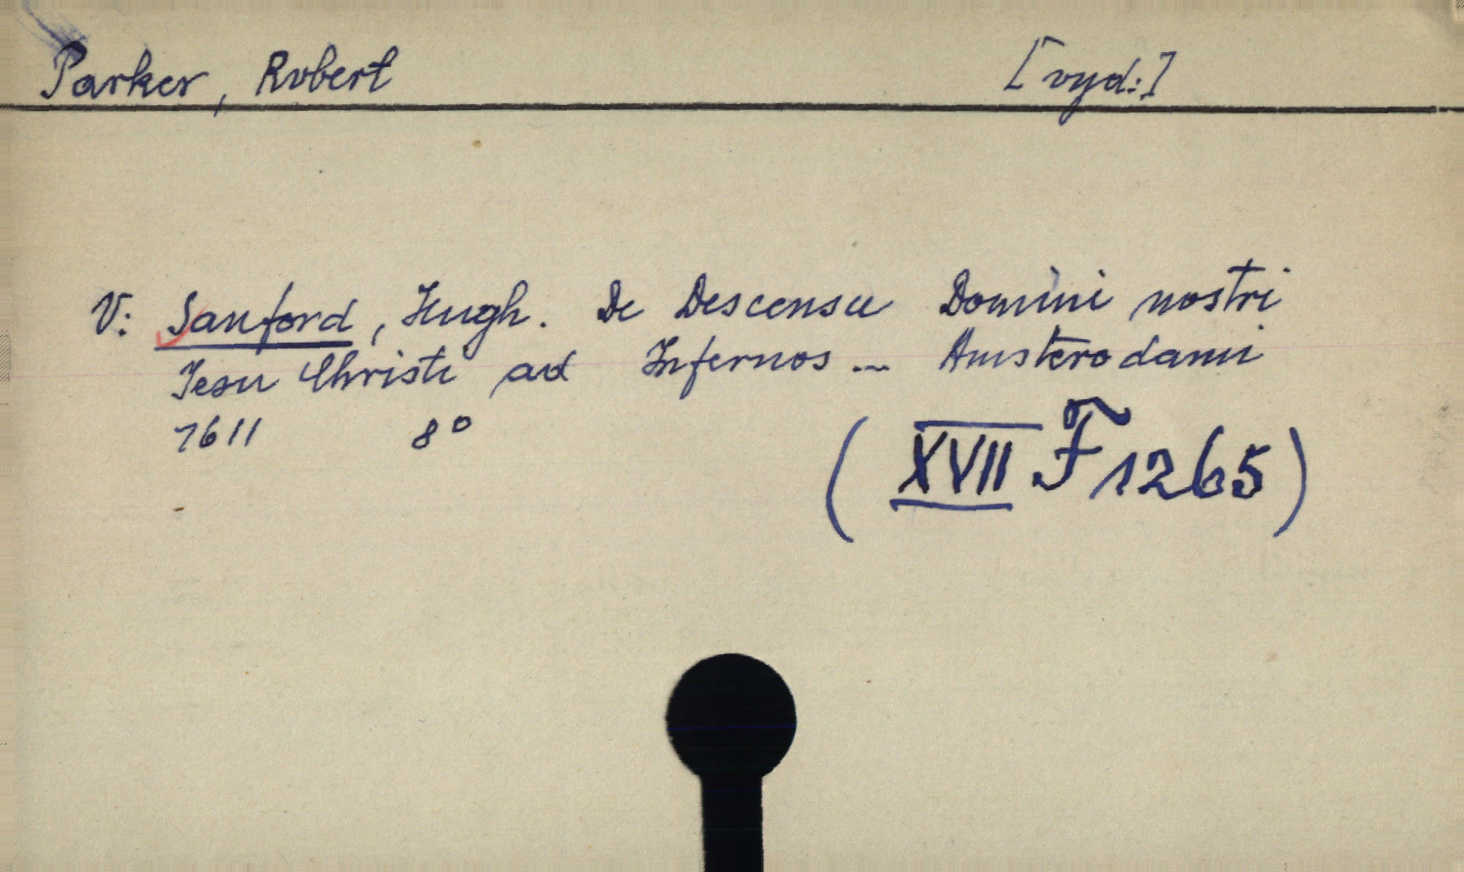 Parker, Robert [vyd:]
V: Sanford, Hugh. De Descensu Domini nostri
Jesu Christi ad Infernos ... Amsterodami
1611 8°
( XVII F 1265 )